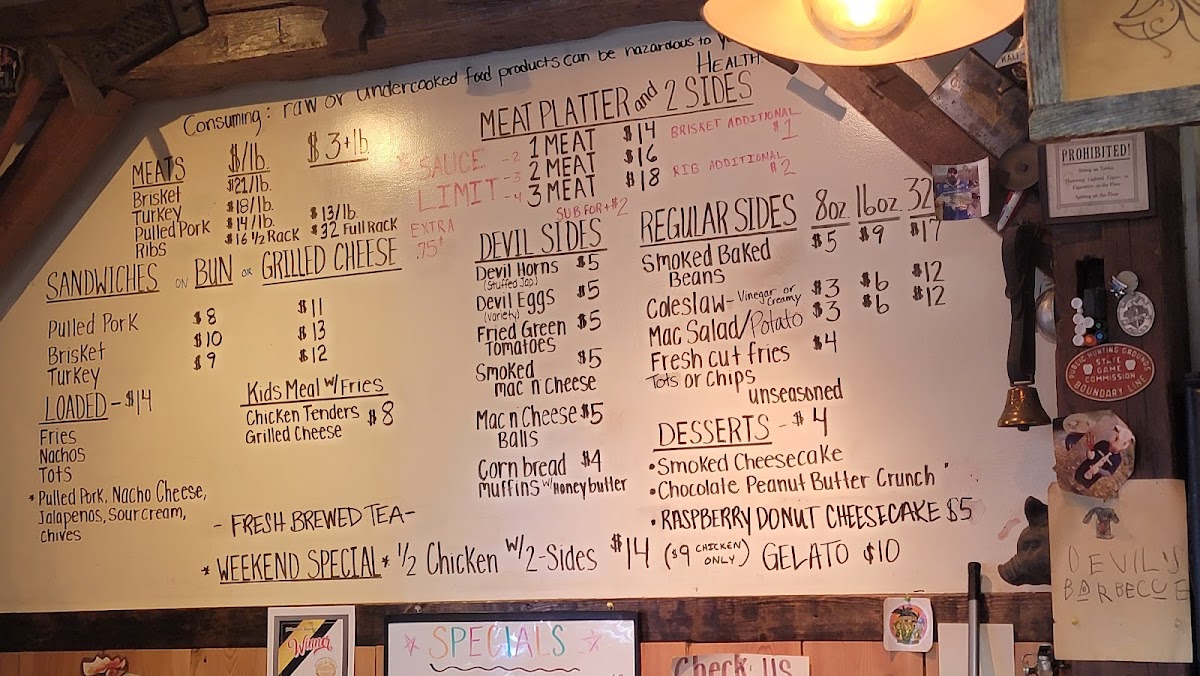 Consuming: raw or undercooked food products can be hazardous to
HEALTH
MEATS $/lb. $3+lb.
Brisket $21/lb.
Turkey $18/lb.
Pulled Pork $14/lb. $13/lb.
Ribs $16 1/2 Rack $32 Full Rack
MEAT PLATTER and 2 SIDES
* SAUCE -2
LIMIT -3
-4
EXTRA
.75¢
1 MEAT $14
2 MEAT $16
3 MEAT $18
BRISKET ADDITIONAL
$1
RIB ADDITIONAL
$2
SUB FOR +$2
SANDWICHES ON BUN OR GRILLED CHEESE
Pulled Pork $8 $11
Brisket $10 $13
Turkey $9 $12
LOADED - $14
Fries
Nachos
Tots
*Pulled Pork, Nacho Cheese,
Jalapenos, Sour cream,
chives
Kids Meal w/ Fries
Chicken Tenders $8
Grilled Cheese
DEVIL SIDES
Devil Horns $5
(Stuffed Jap)
Devil Eggs $5
(variety)
Fried Green $5
Tomatoes
Smoked $5
mac n cheese
Mac n Cheese $5
Balls
Corn bread $4
muffins w/ Honey butter
REGULAR SIDES 8oz 16oz. 32
Smoked Baked $5 $9 $17
Beans
Coleslaw - Vinegar or Creamy $3 $6 $12
Mac Salad/Potato $3 $6 $12
Fresh cut fries $4
Tots or Chips
unseasoned
DESSERTS - $4
• Smoked Cheesecake
• Chocolate Peanut Butter Crunch
• RASPBERRY DONUT CHEESECAKE $5
- FRESH BREWED TEA -
* WEEKEND SPECIAL * 1/2 Chicken w/ 2-Sides $14 ($9 CHICKEN ONLY) GELATO $10
PROHIBITED!
Sitting on Tables
Spitting on the Floor
PUBLIC HUNTING GROUNDS
STATE
GAME
COMMISSION
BOUNDARY LINE
DEVIL'S
BARBECUE
Winner
* SPECIALS *
Check Us